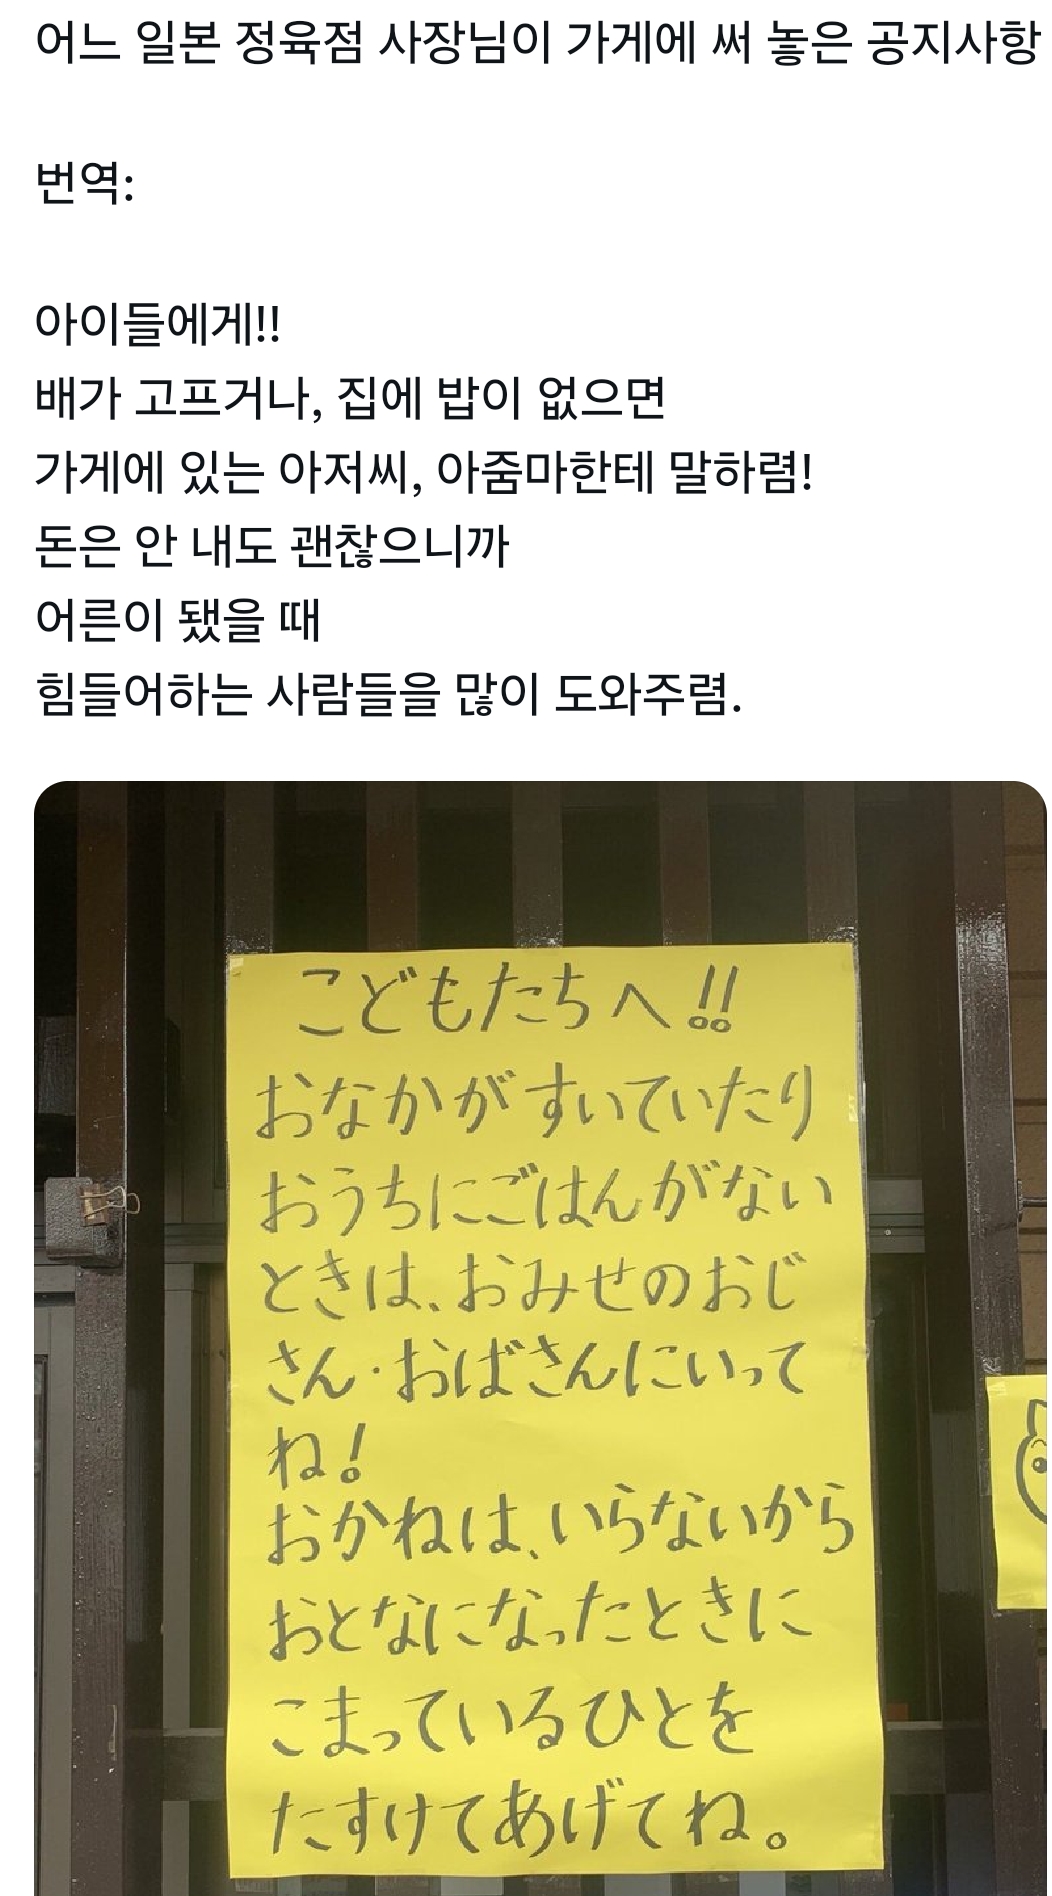 어느 일본 정육점 사장님이 가게에 써 놓은 공지사항
번역:
아이들에게!!
배가 고프거나, 집에 밥이 없으면
가게에 있는 아저씨, 아줌마한테 말하렴!
돈은 안 내도 괜찮으니까
어른이 됐을 때
힘들어하는 사람들을 많이 도와주렴.
こどもたちへ!!
おなかがすいていたり
おうちにごはんがない
ときは、おみせのおじ
さん・おばさんにいって
ね!
おかねは、いらないから
おとなになったときに
こまっているひとを
たすけてあげてね。